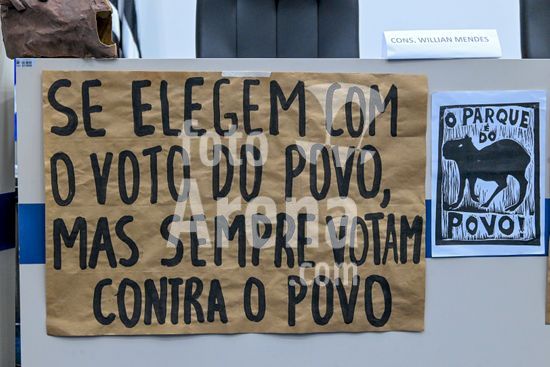 CONS. WILLIAN MENDES
SE ELEGEM COM
O VOTO DO POVO,
MAS SEMPRE VOTAM
CONTRA O POVO
O PARQUE
É DO
POVO!
foto
Arena
.com